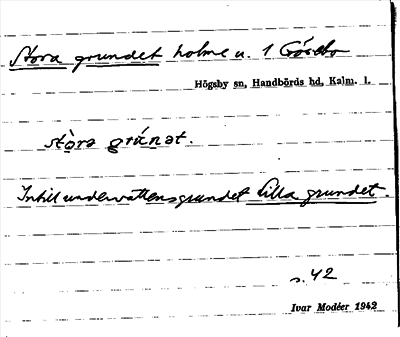 Stora grundet holme u. 1 Görebo
Högsby sn, Handbörds hd, Kalm. l.
stòra grúnat.
Intill undervattensgrundet Lilla grundet.
s. 42
Ivar Modéer 1942